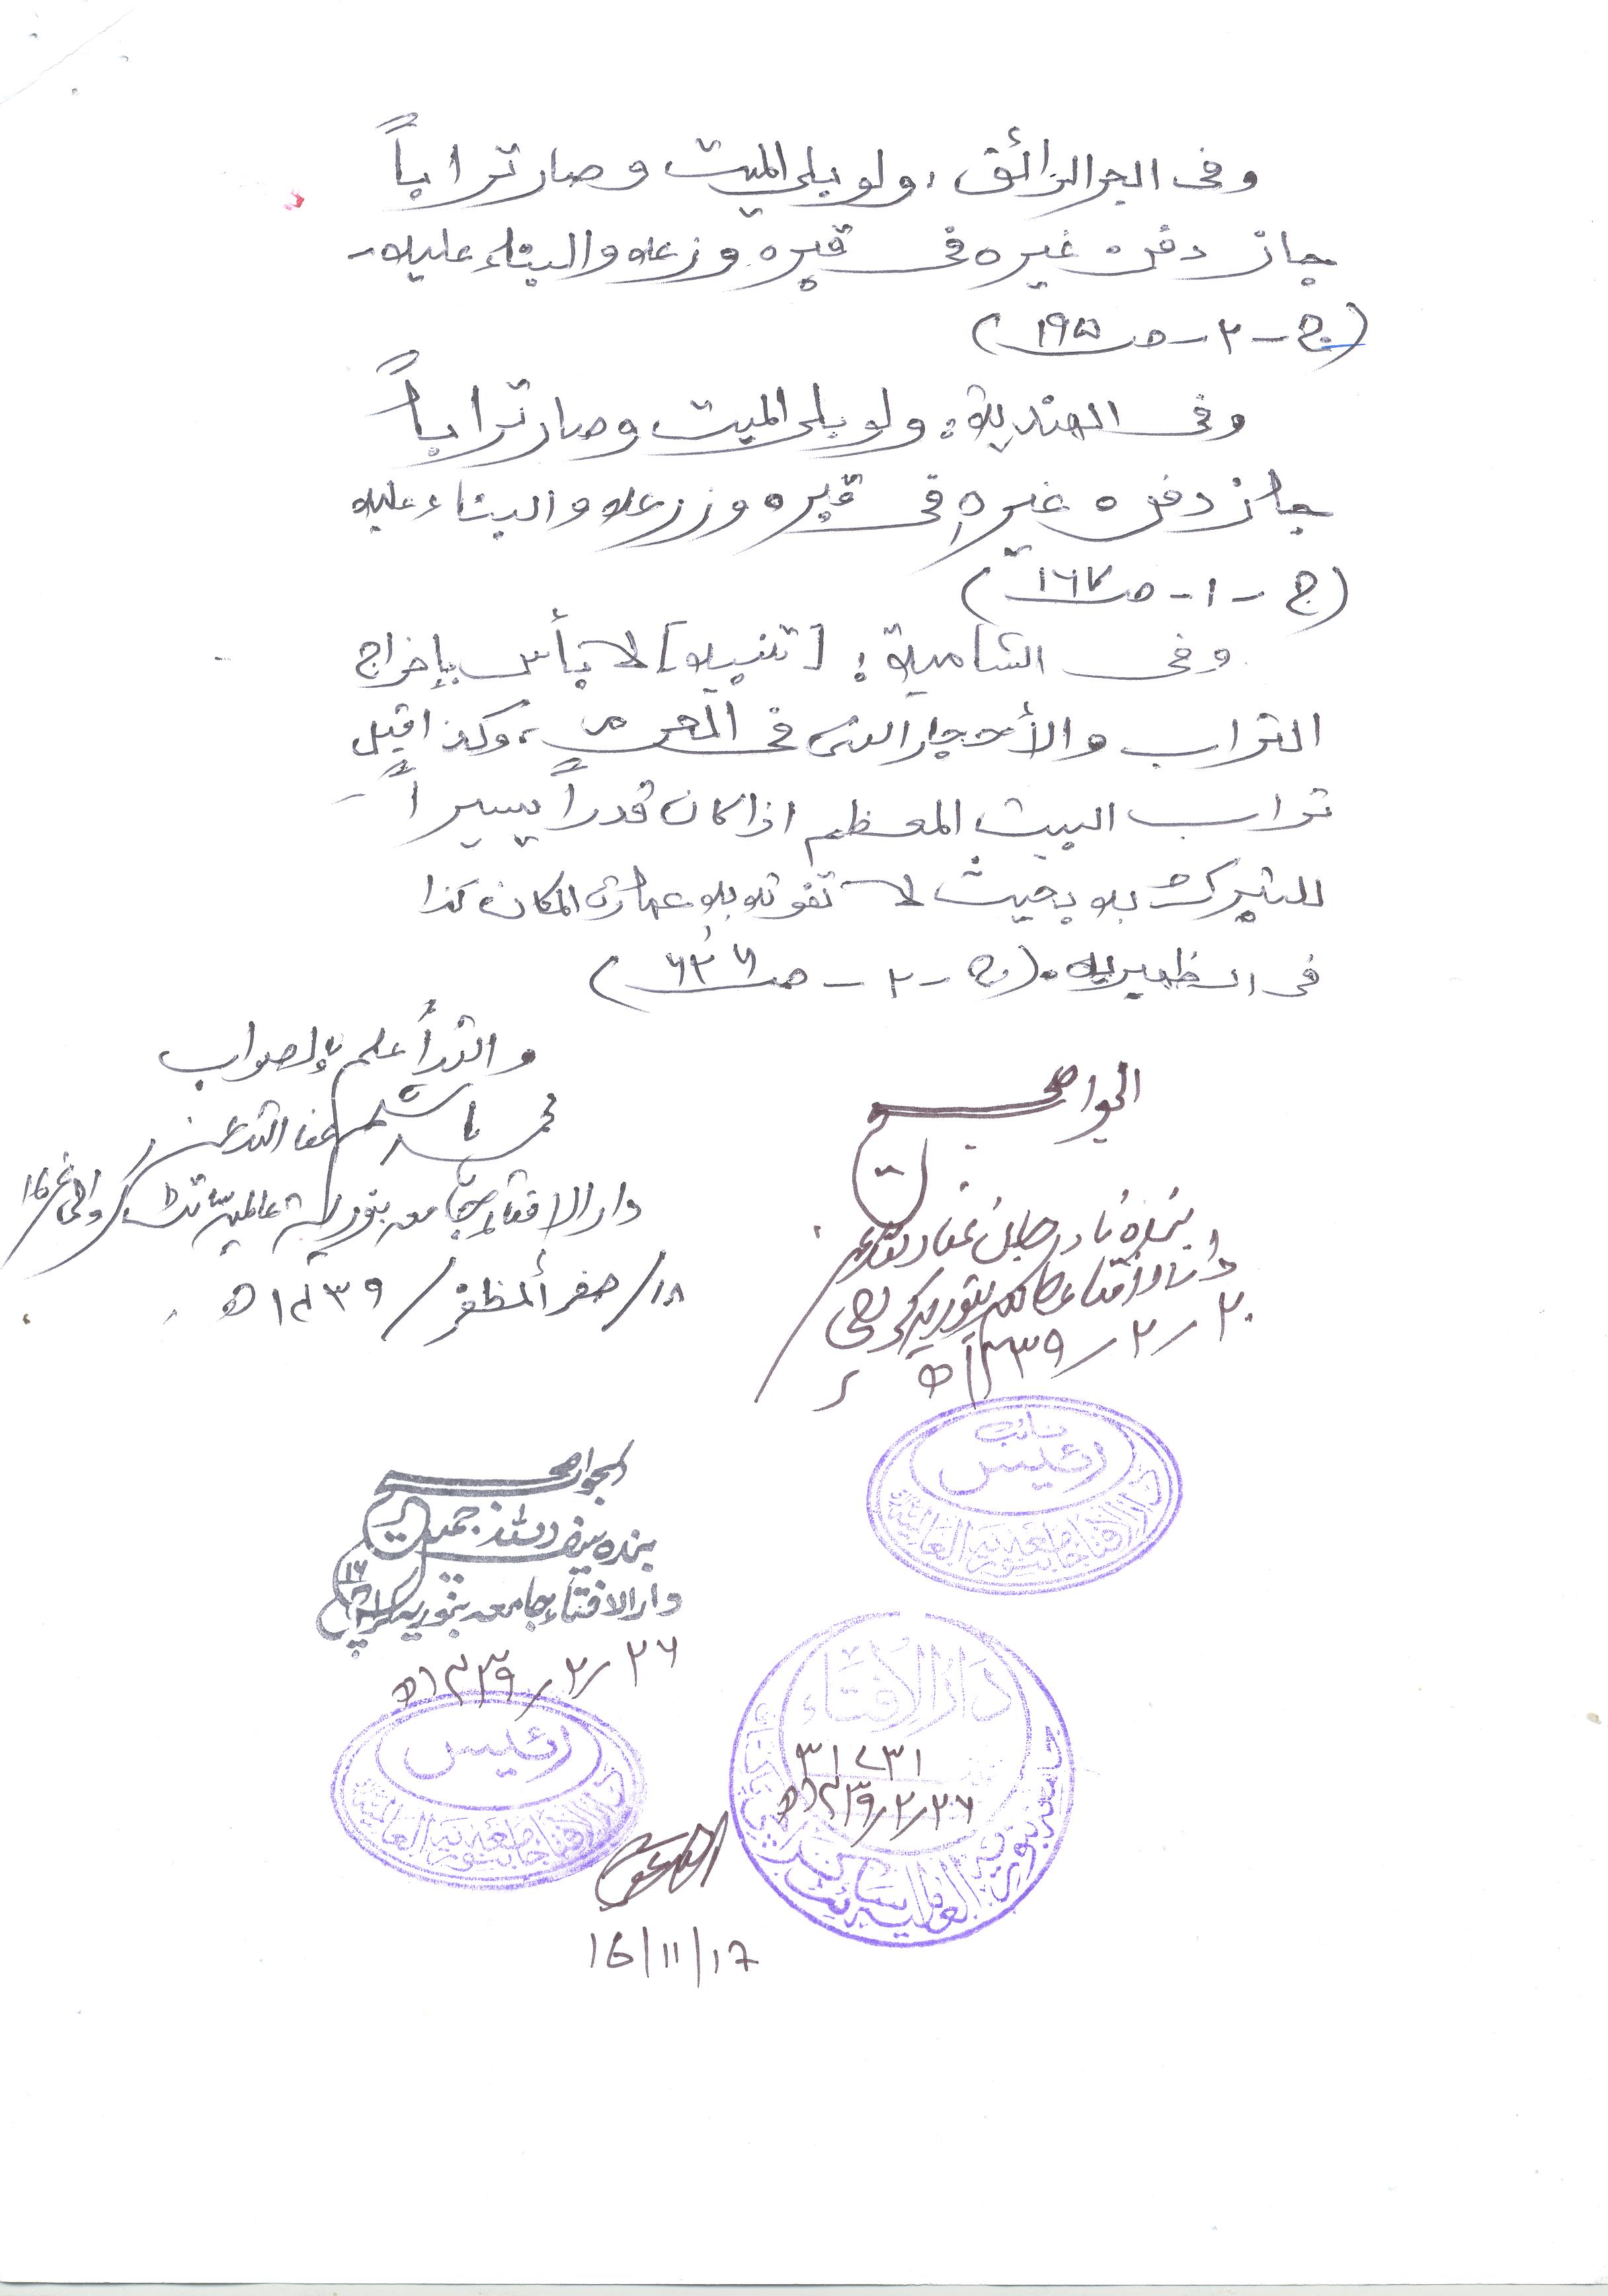 وفى البحر الرائق: ولو بلى الميت وصار تراباً
جاز دفن غيره فى قبره وزرعه والبناء عليه۔
(ج - ٢ - صـ ١٩٥)
وفى الهندية: ولو بلى الميت وصار تراباً
جاز دفن غيره فى قبره وزرعه والبناء عليه
(ج - ١ - صـ ١٦٧)
وفى الشامية: [تنبيه] لا بأس بإخراج
التراب والأحجار التى فى الحرم، وكذا قيل
تراب البيت المعظم اذا كان قدراً يسيراً
للتبرك به بحيث لا تفوت به عمارة المكان كذا
فى الظهيرية. (ج - ٢ - صـ ٦٢٦)
واللہ أعلم بالصواب
عفا اللہ عنہ
دار الافتاء جامعہ بنوریہ عالمیہ سائٹ کراچی ١٦
١٨/ صفر المظفر/ ١٤٣٩ھ
الجواب صحیح
بندہ نادر جان عفا اللہ عنہ
دار الافتاء جامعہ بنوریہ کراچی
٢٠ / ٢ / ١٤٣٩ھ
نائب
رئیس
دار الافتاء جامعہ بنوریہ العالمیہ
الجواب صحیح
بندہ سیف اللہ جمیل
دار الافتاء جامعہ بنوریہ کراچی ١٦
٢٦ / ٢ / ١٤٣٩ھ
رئیس
دار الافتاء جامعہ بنوریہ العالمیہ
دَارُ الْاِفْتَاء
٣١٧٣١
٢٦ / ٢ / ١٤٣٩ھ
جامعہ بنوریہ العالمیہ سائٹ کراچی
16/11/17